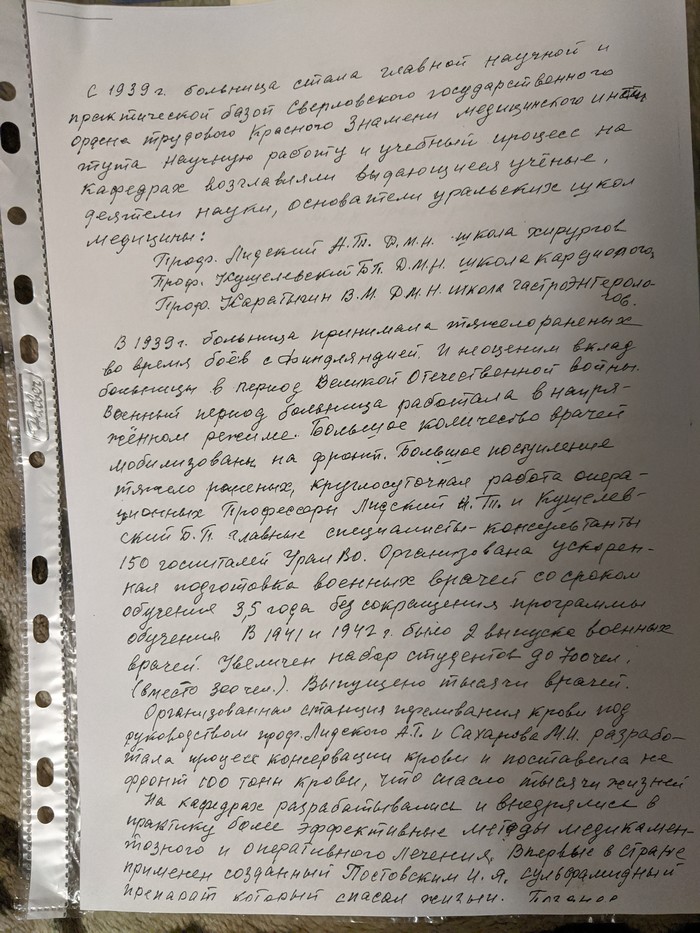 С 1939 г. больница стала главной научной и
практической базой Свердловского государственного
ордена трудового Красного Знамени медицинского инсти
тута Научную работу и учебный процесс на
кафедрах возглавляли выдающиеся учёные,
деятели науки, основатели уральских школ
медицины:
Проф. Лидский А.Т. Д.М.Н. школа хирургов
Проф. Кушелевский Б.П. Д.М.Н. школа кардиологов
Проф. Каратыгин В.М. Д.М.Н. школа гастроэнтероло-
гов.
В 1939 г. больница принимала тяжелораненых
во время боёв с Финляндией. И неоценим вклад
больницы в период Великой Отечественной войны.
Военный период больница работала в напря-
жённом режиме. Большое количество врачей
мобилизованы на фронт. Большое поступление
тяжело раненых, круглосуточная работа опера-
ционных Профессоры Лидский А.Т. и Кушелев-
ский Б.П. главные специалисты-консультанты
150 госпиталей УралВо. Организована ускорен-
ная подготовка военных врачей со сроком
обучения 3,5 года без сокращения программы
обучения В 1941 и 1942 г. было 2 выпуска военных
врачей. Увеличен набор студентов до 700 чел.
(вместо 300 чел.). Выпущено тысячи врачей.
Организованная станция переливания крови под
руководством проф. Лидского А.Т. и Сахарова М.И. разрабо-
тала процесс консервации крови и поставила на
фронт 100 тонн крови, что спасло тысячи жизней
На кафедрах разрабатывались и внедрялись в
практику более эффективные методы медикамен-
тозного и оперативного лечения. Впервые в стране
применен созданный Постовским И.Я. сульфамидный
препарат который спасал жизни.